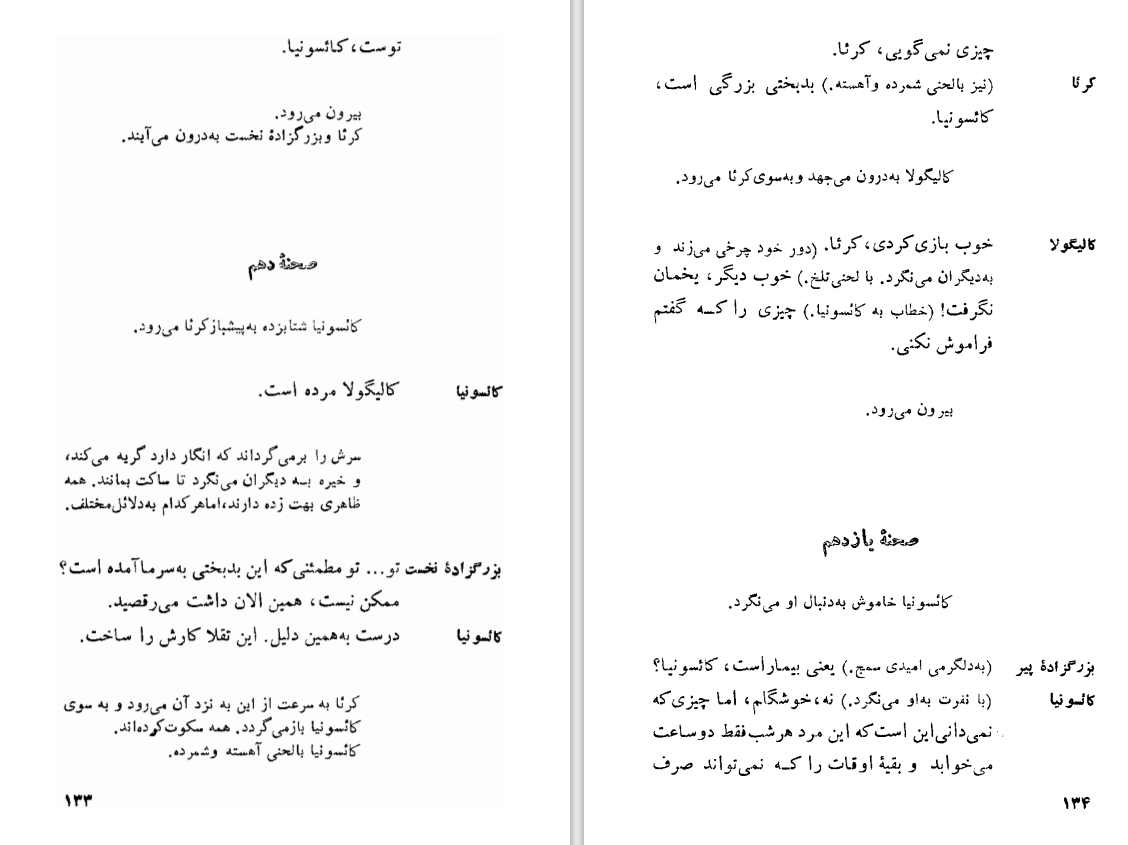 توست، کائسونیا.
بیرون می‌رود.
کرئا و بزرگزادۀ نخست به‌درون می‌آیند.
صحنۀ دهم
کائسونیا شتابزده به‌پیشباز کرئا می‌رود.
کائسونیا کالیگولا مرده است.
سرش را برمی‌گرداند که انگار دارد گریه می‌کند،
و خیره بـه دیگران می‌نگرد تا ساکت بمانند. همه
ظاهری بهت زده دارند، اما هرکدام به‌دلائل مختلف.
بزرگزادۀ نخست تو... تو مطمئنی که این بدبختی به‌سرما آمده است؟
ممکن نیست، همین الان داشت می‌رقصید.
کائسونیا درست به‌همین دلیل. این تقلا کارش را ساخت.
کرئا به سرعت از این به نزد آن می‌رود و به سوی
کائسونیا بازمی‌گردد. همه سکوت کرده‌اند.
کائسونیا بالحنی آهسته و شمرده.
۱۳۳
چیزی نمی‌گویی، کرئا.
کرئا (نیز بالحنی شمرده و آهسته.) بدبختی بزرگی است،
کائسونیا.
کالیگولا به‌درون می‌جهد و به‌سوی کرئا می‌رود.
کالیگولا خوب بازی کردی، کرئا. (دور خود چرخی می‌زند و
به‌دیگران می‌نگرد. با لحنی تلخ.) خوب دیگر، یخمان
نگرفت! (خطاب به کائسونیا.) چیزی را کـه گفتم
فراموش نکنی.
بیرون می‌رود.
صحنۀ یازدهم
کائسونیا خاموش به‌دنبال او می‌نگرد.
بزرگزادۀ پیر (به‌دلگرمی امیدی سمج.) یعنی بیمار است، کائسونیا؟
کائسونیا (با نفرت به‌او می‌نگرد.) نه، خوشگلم، اما چیزی که
نمی‌دانی این است که این مرد هرشب فقط دو ساعت
می‌خوابد و بقیۀ اوقات را کـه نمی‌تواند صرف
۱۳۴